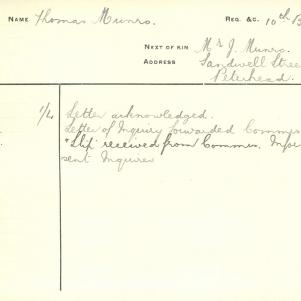 NAME Thomas Munro. REG. &C. 10th B
NEXT OF KIN Mr J. Munro.
ADDRESS Sandwell Stree
Peterhead.
1/4 Letter acknowledged.
Letter of Inquiry forwarded Commis
"Slip" received from Commis. Infor
sent Inquirer